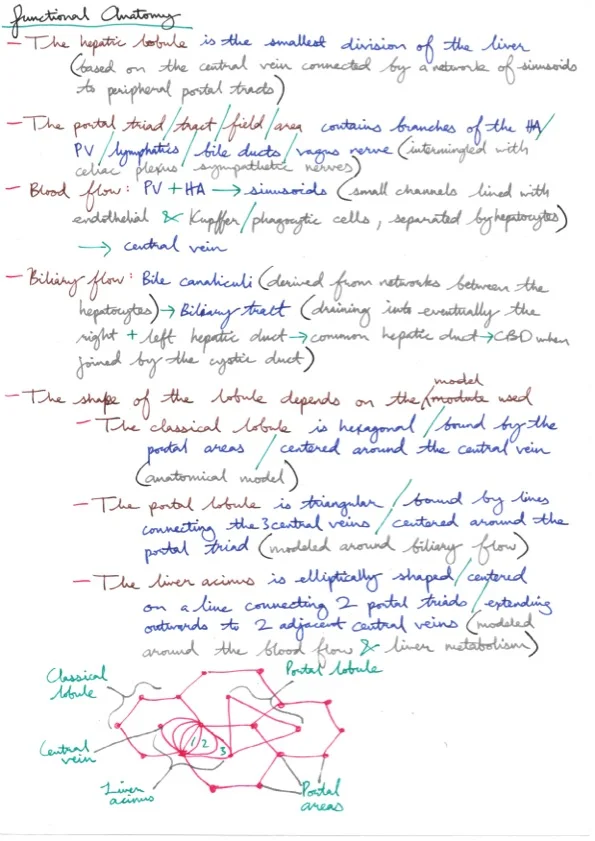 Functional Anatomy
- The hepatic lobule is the smallest division of the liver
(based on the central vein connected by a network of sinusoids
to peripheral portal tracts)
- The portal triad/tract/field/area contains branches of the HA/
PV/lymphatics/bile ducts/vagus nerve (intermingled with
celiac plexus sympathetic nerves)
- Blood flow: PV + HA → sinusoids (small channels lined with
endothelial & Kupffer/phagocytic cells, separated by hepatocytes)
→ central vein
- Biliary flow: Bile canaliculi (derived from networks between the
hepatocytes) → Biliary tract (draining into eventually the
right + left hepatic duct → common hepatic duct → CBD when
joined by the cystic duct)
model
- The shape of the lobule depends on the used
- The classical lobule is hexagonal / bound by the
portal areas / centered around the central vein
(anatomical model)
- The portal lobule is triangular / bound by lines
connecting the 3 central veins / centered around the
portal triad (modeled around biliary flow)
- The liver acinus is elliptically shaped / centered
on a line connecting 2 portal triads / extending
outwards to 2 adjacent central veins (modeled
around the blood flow & liver metabolism)
Classical
lobule
Portal lobule
Central
vein
1 2 3
Liver
acinus
Portal
areas